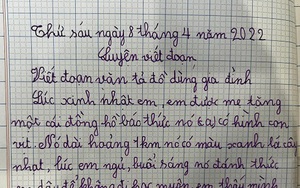 Thứ sáu ngày 8 tháng 4 năm 2022
Luyện viết đoạn
Viết đoạn văn tả đồ dùng gia đình
Lúc xinh nhật em, em được mẹ tặng
một cái đồng hồ báo thức nó có hình con
vịt. Nó dài hoảng 7km nó có màu xanh lá cây
nhạt, lúc em ngủ, buổi sáng nó đánh thức
em dậy để không đi học muộn em thấy mình